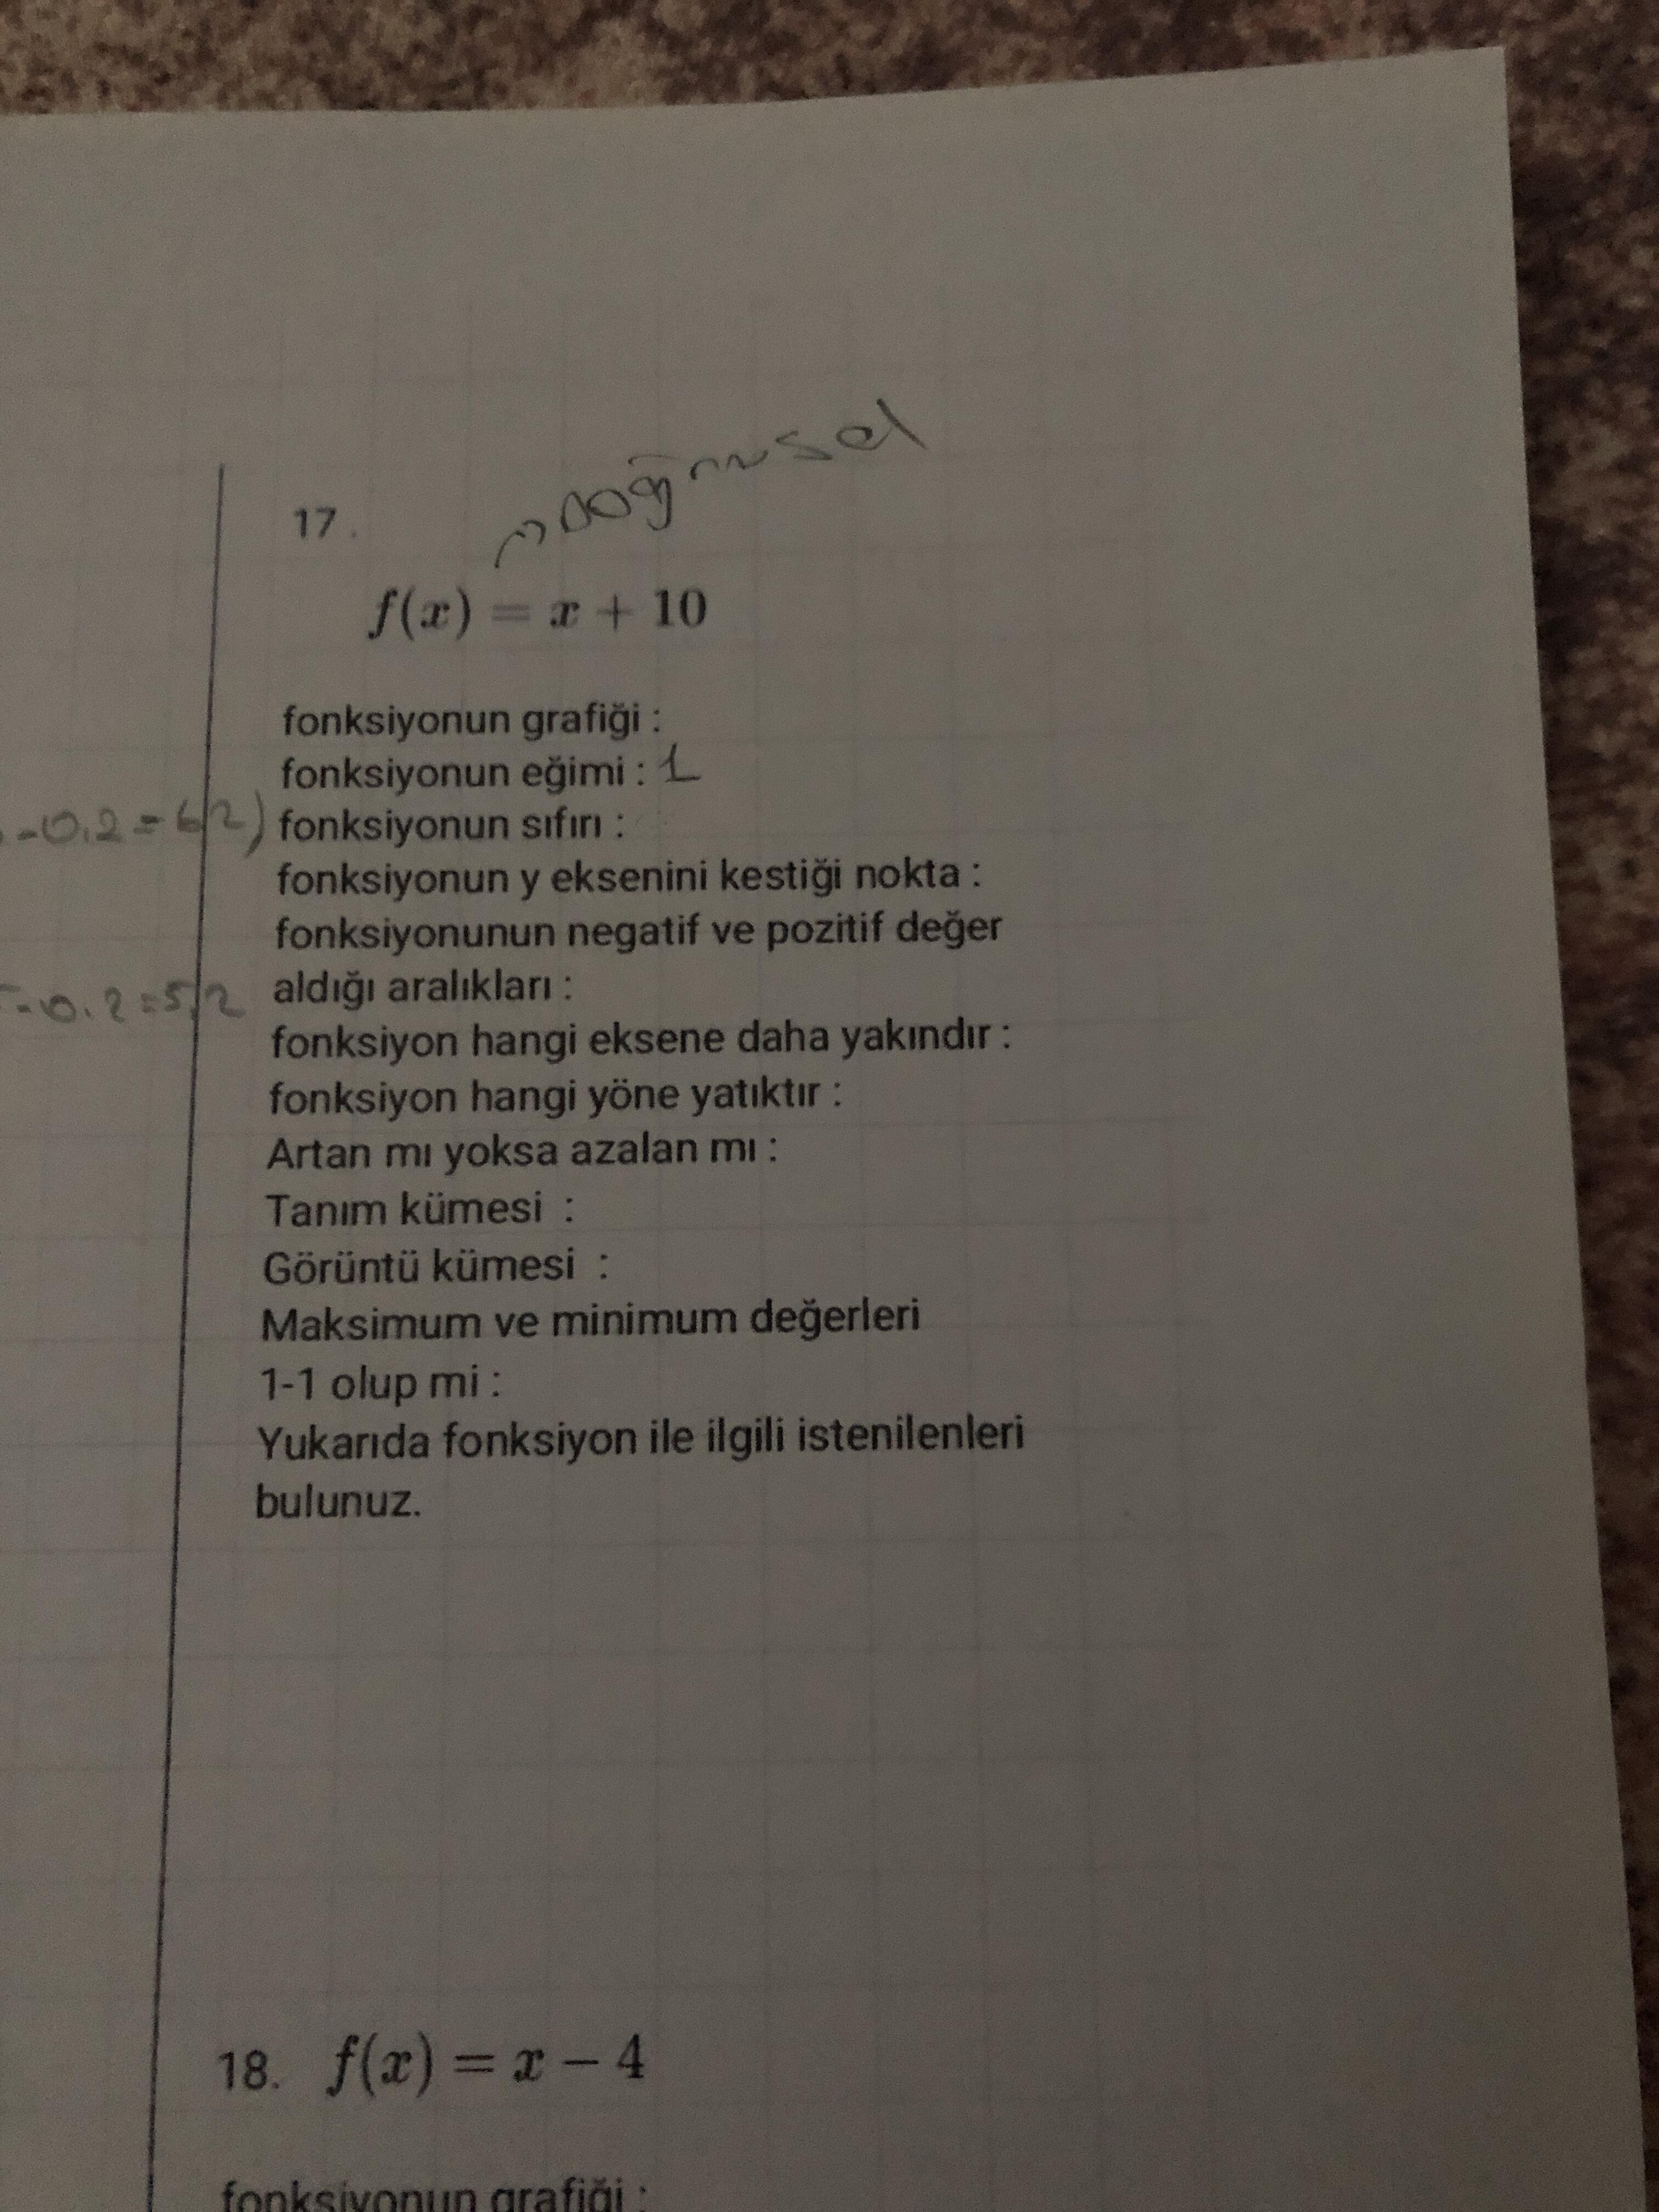 Doğrusal
17.
f(x) = x + 10
fonksiyonun grafiği :
fonksiyonun eğimi : 1
-0.2 = 6,2)
fonksiyonun sıfırı :
fonksiyonun y eksenini kestiği nokta :
fonksiyonunun negatif ve pozitif değer
-0.2=5,2
aldığı aralıkları :
fonksiyon hangi eksene daha yakındır :
fonksiyon hangi yöne yatıktır :
Artan mı yoksa azalan mı :
Tanım kümesi :
Görüntü kümesi :
Maksimum ve minimum değerleri
1-1 olup mi :
Yukarıda fonksiyon ile ilgili istenilenleri
bulunuz.
18. f(x) = x − 4
fonksiyonun grafiği :